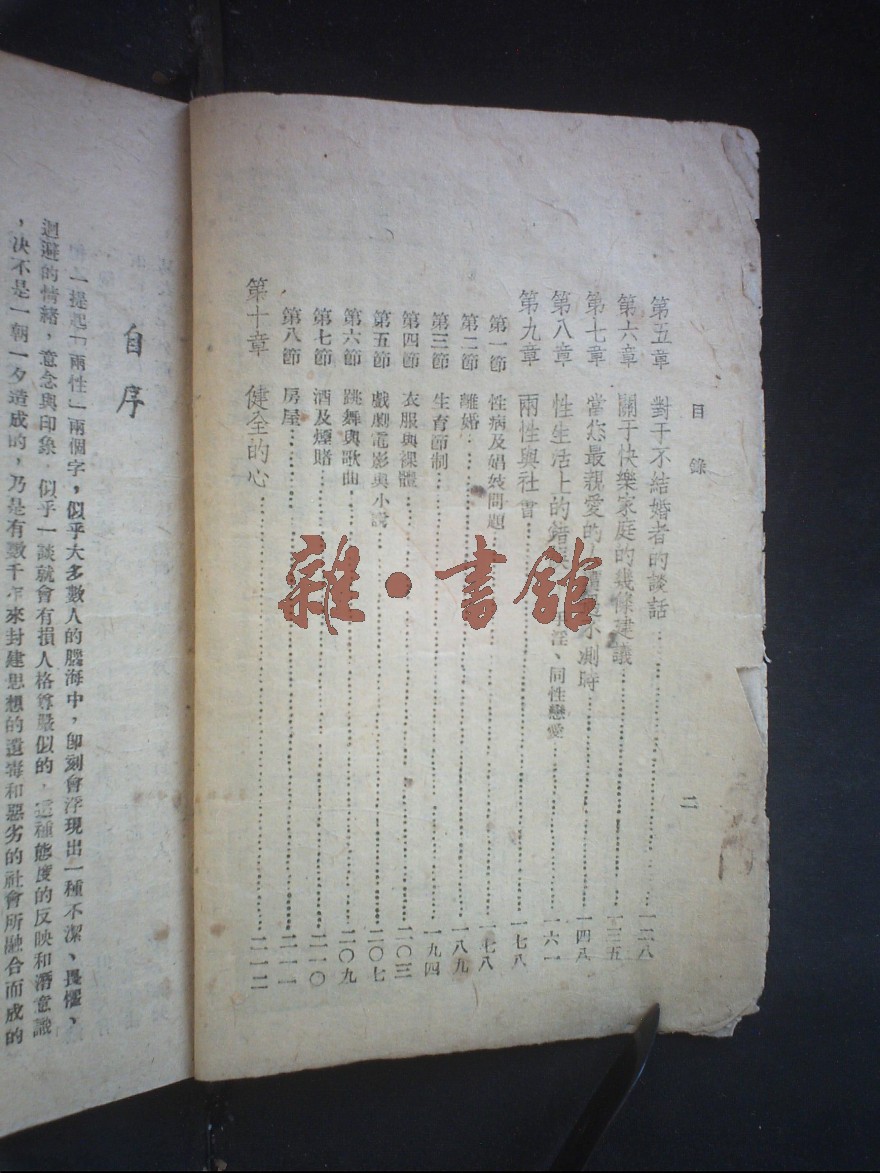 目錄
第五章 對于不結婚者的談話 一二八
第六章 關于快樂家庭的幾條建議 一三五
第七章 當您最親愛的 不測時 一四八
第八章 性生活上的錯 淫、同性戀愛 一六一
第九章 兩性與社會 一七八
第一節 性病及娼妓問題 一七八
第二節 離婚 一八九
第三節 生育節制 一九四
第四節 衣服與裸體 二〇三
第五節 戲劇電影與小說 二〇七
第六節 跳舞與歌曲 二〇九
第七節 酒及煙賭 二一〇
第八節 房屋 二一一
第十章 健全的心 二一二
二
雜·書館
自序
一提起「兩性」兩個字，似乎大多數人的腦海中，卽刻會浮現出一種不潔、畏懼、
迴避的情緒，意念與印象，似乎一談就會有損人格尊嚴似的，這種態度的反映和潛意識
，决不是一朝一夕造成的，乃是有數千年來封建思想的遺毒和惡劣的社會所融合而成的